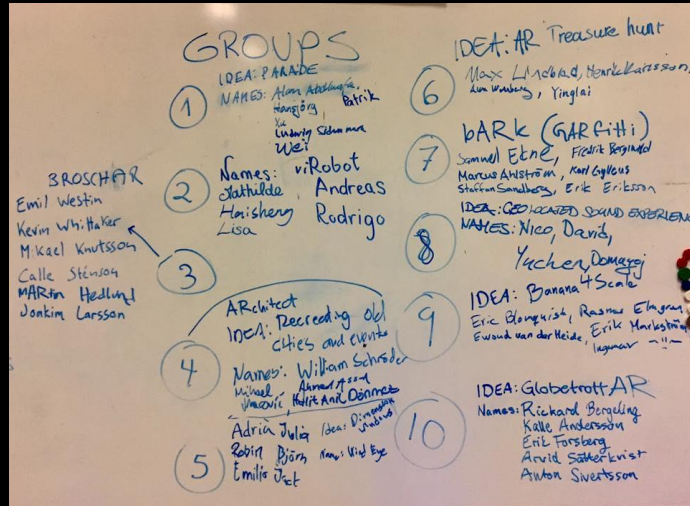 GROUPS
1
IDEA: PARADE
NAMES: Alan
Hansjörg Patrik
Xu
Ludwig
Wei
2
Names: viRobot
Mathilde Andreas
Haisheng Rodrigo
Lisa
BROSCHAR
Emil Westin
Kevin Whittaker
Mikael Knutsson
Calle Stenson
MARtin Hedlund
Joakim Larsson
3
4
ARchitect
IDEA: Recreating old
cities and events
Names: William Schröder
Mihael Ahmed
Halit Anil Dönmez
5
Adrià Julià Idea: Dimension
Robin Björn Name: Wind Eye
Emilio Jack
IDEA: AR Treasure hunt
6
Max Lindblad, Henrik Karlsson,
Yinglai
7
bARk (GARfitti)
Samuel Ekne, Fredrik Berglund
Marcus Ahlström, Karl Gylleus
Staffan Sandberg, Erik Eriksson
8
IDEA: GEOLOCATED SOUND EXPERIENC
NAMES: Nico, David,
Yuchen, Domagoj
9
IDEA: Banana 4 Scale
Eric Blomquist, Rasmus Ekagran
Ewoud van der Heide, Erik Markström
Ingemar -"-
10
IDEA: GlobetrottAR
Names: Rickard Bergeling
Kalle Andersson
Erik Forsberg
Arvid Sätterkvist
Anton Sivertsson